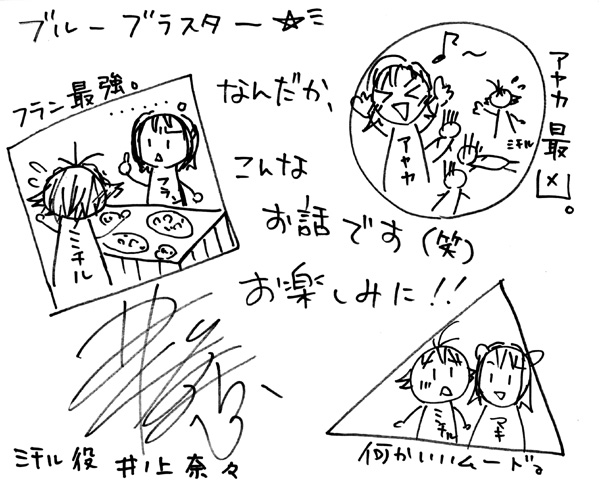 ブルーブラスター☆ミ
フラン最強。
・・・・・・・・。
フラン
ミチル
なんだか、
こんな
お話です(笑)
お楽しみに!!
♪〜
アヤカ
ミチル
アヤカ最凶。
ミチル
アキ
何かいいムード。
ミチル役 井上奈々